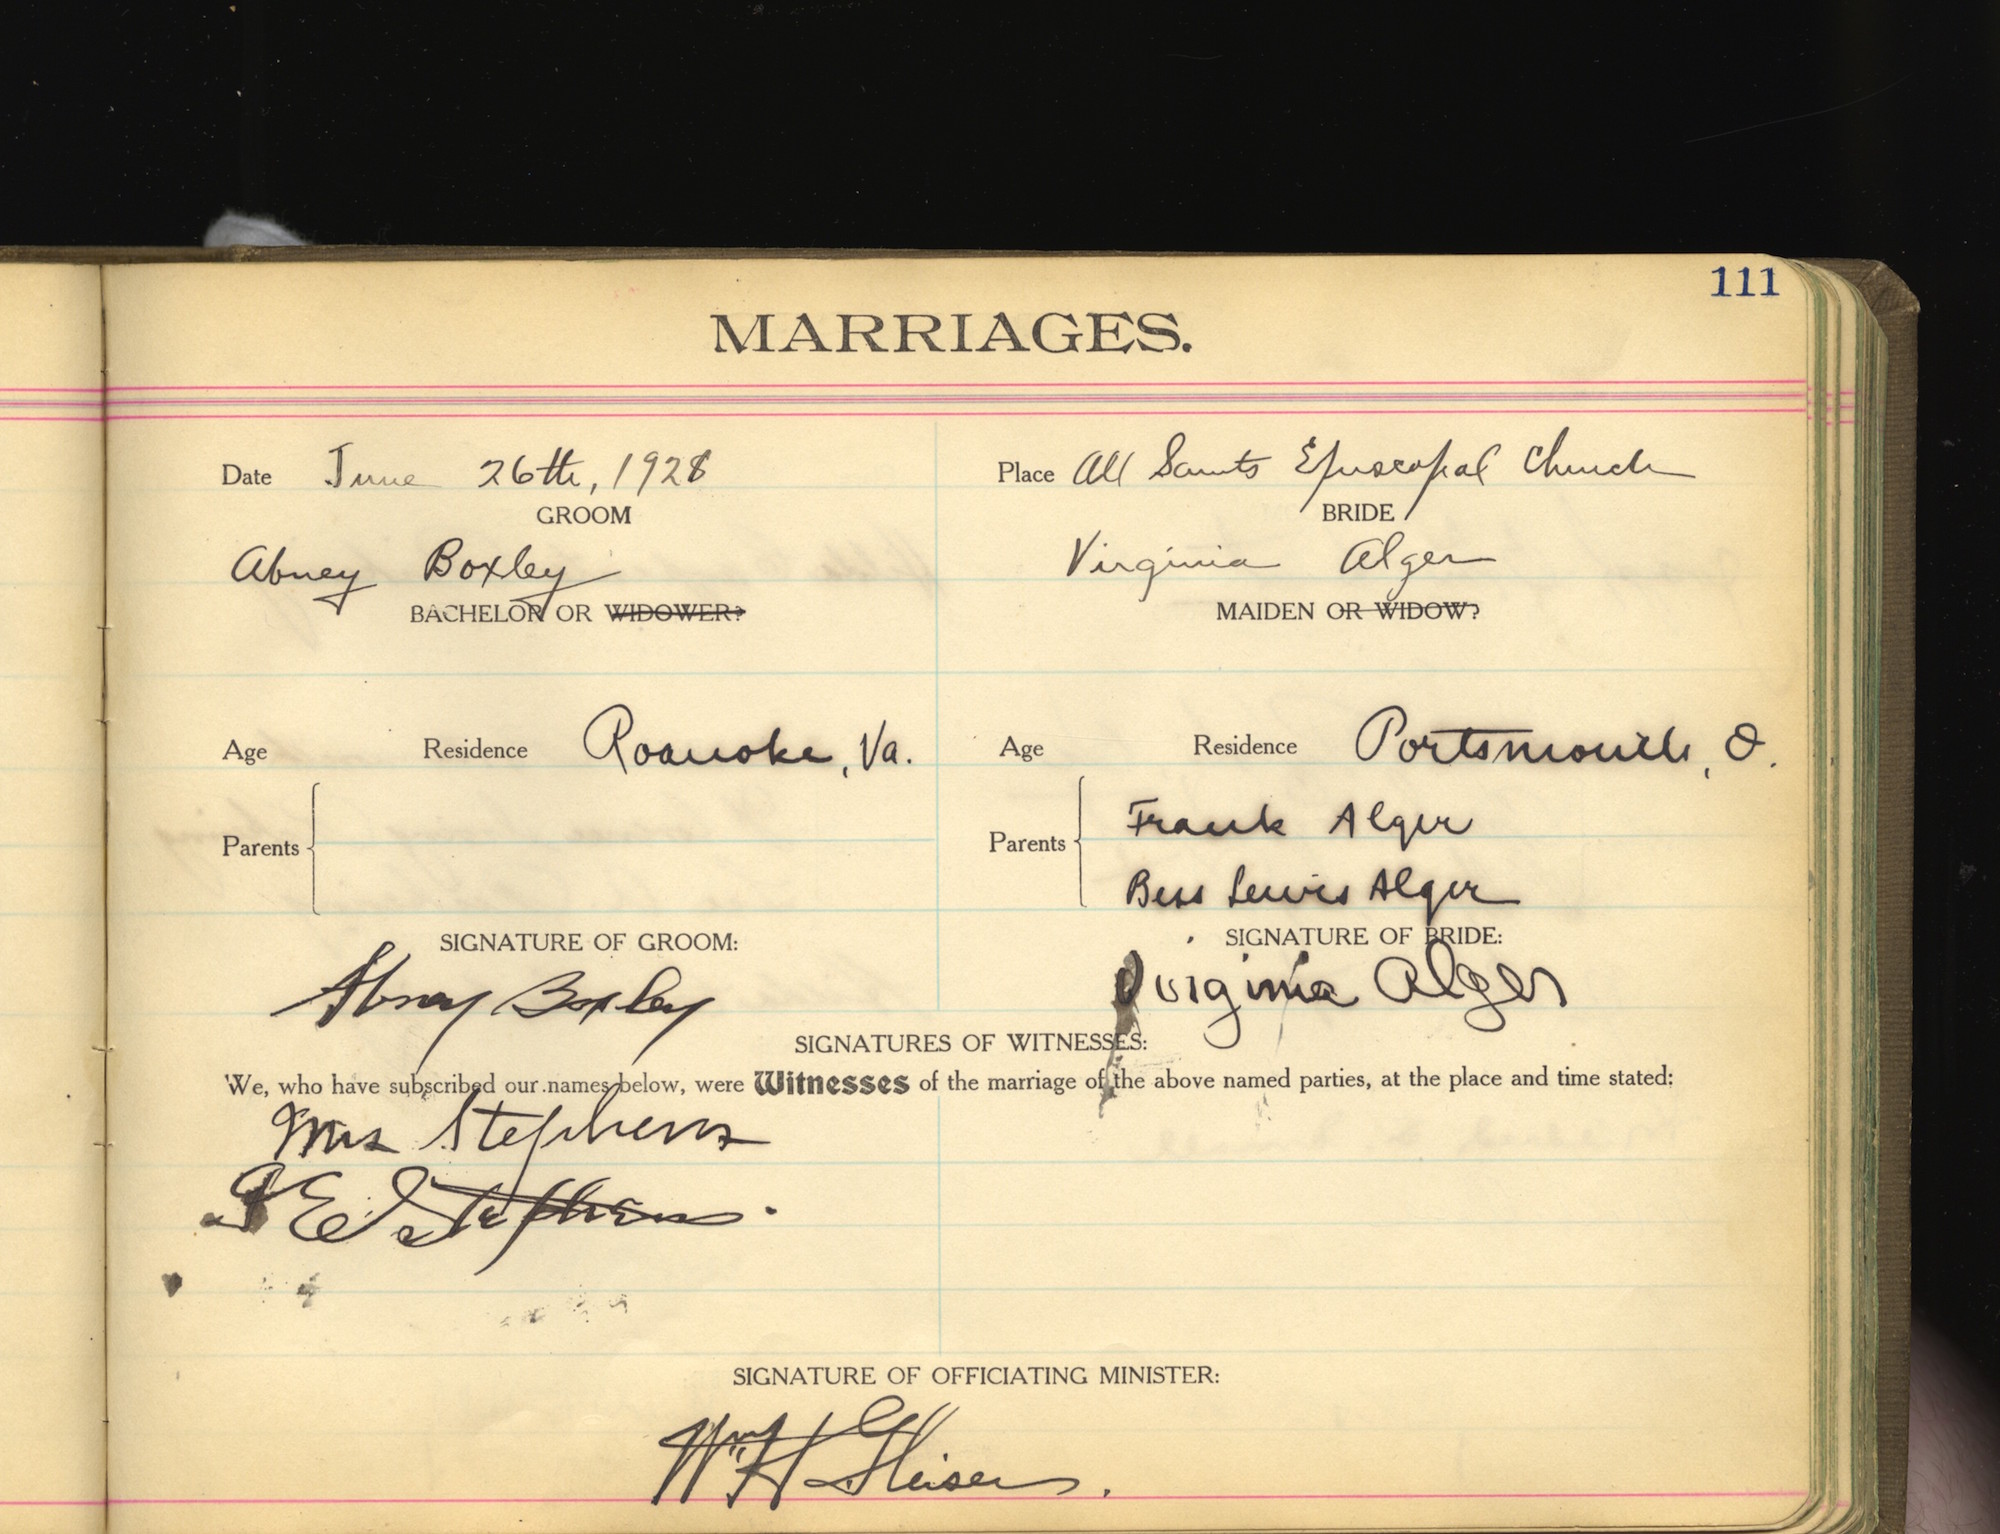 111
MARRIAGES.
Date June 26th, 1928 Place All Saints Episcopal Church
GROOM BRIDE
Abney Boxley Virginia Alger
BACHELOR OR WIDOWER? MAIDEN OR WIDOW?
Age Residence Roanoke, Va. Age Residence Portsmouth, O.
Parents Parents
Frank Alger
Bess Lewis Alger
SIGNATURE OF GROOM: SIGNATURE OF BRIDE:
Abney Boxley Virginia Alger
SIGNATURES OF WITNESSES:
We, who have subscribed our names below, were Witnesses of the marriage of the above named parties, at the place and time stated:
Mrs Stephens
E Stephens.
SIGNATURE OF OFFICIATING MINISTER:
Wm H